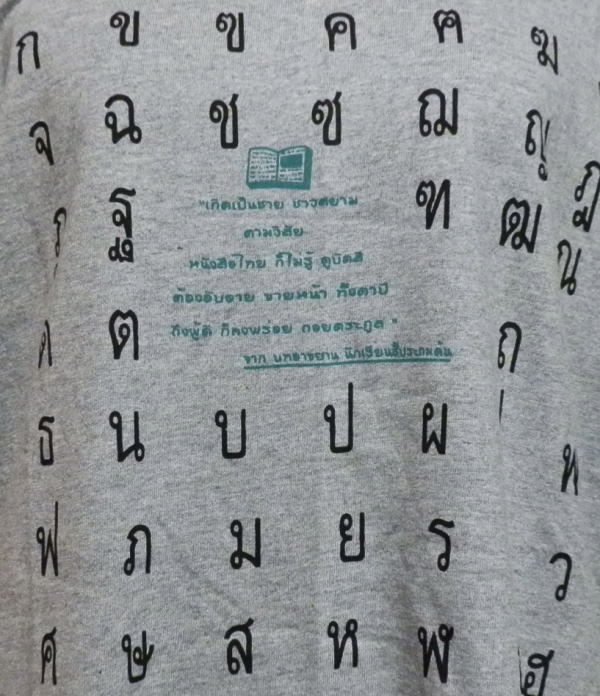 ก ข ฃ ค ฅ ฆ
จ ฉ ช ซ ฌ ญ ฎ
ฐ ฑ ฒ ณ
"เกิดเป็นชาย ชาวสยาม
ตามวิสัย
หนังสือไทย ก็ไม่รู้ ดูบัดสี
ต้องอับอาย ขายหน้า ทั้งตาปี
ถึงผู้ดี ก็คงพร่อย ถอยตระกูล"
จาก บทอาขยาน นักเรียนชั้นประถมต้น
ด ต ถ
ธ น บ ป ผ
ฟ ภ ม ย ร ว
ศ ษ ส ห ฬ ฮ